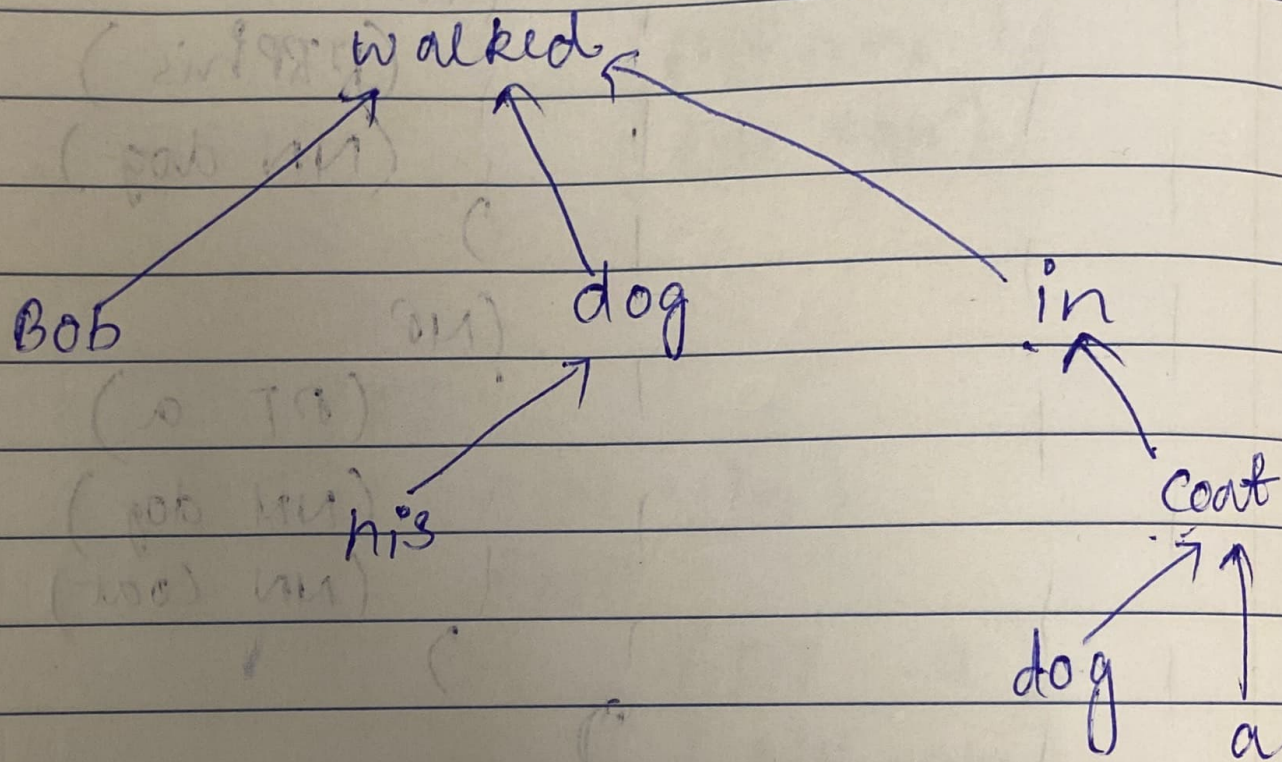 walked
Bob dog in
his coat
dog a